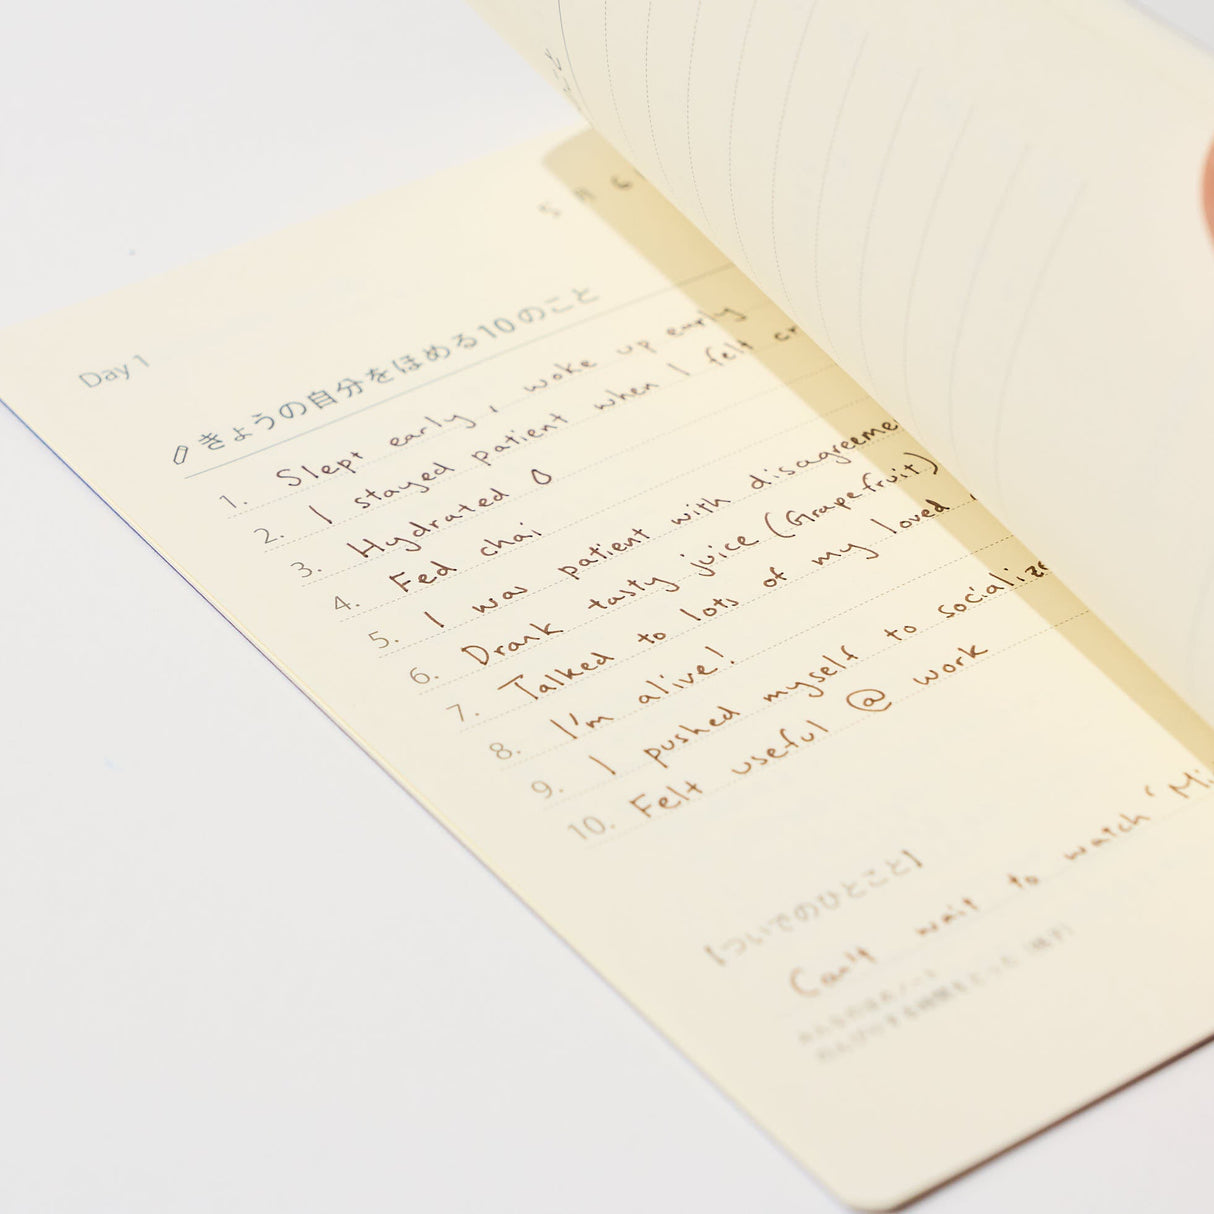 5 月 6
Day 1
きょうの自分をほめる10のこと
1. Slept early, woke up early
2. I stayed patient when I felt cr
3. Hydrated
4. Fed chai
5. I was patient with disagreeme
6. Drank tasty juice (Grapefruit)
7. Talked to lots of my loved
8. I'm alive!
9. I pushed myself to socialize
10. Felt useful @ work
【ついでのひとこと】
Can't wait to watch 'Mi